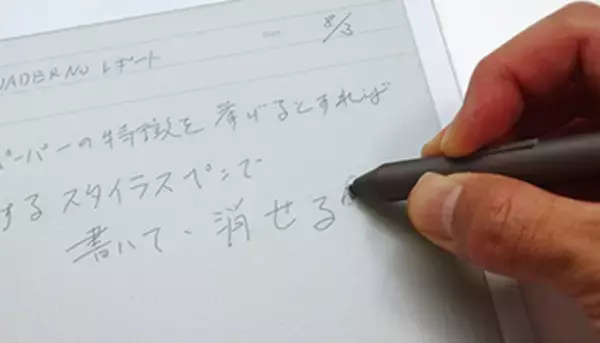 8/3
UADERNO レポート
ペーパーの特徴を挙げるとすれば
するスタイラスペンで
書いて、消せる